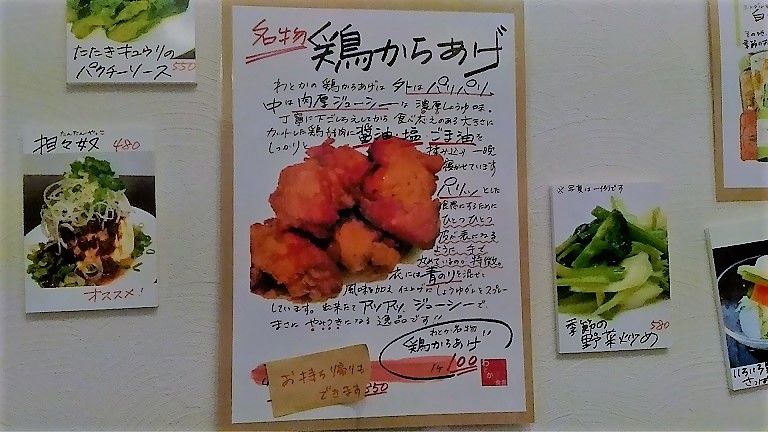 たたきキュウリの
パクチーソース 550
たんたんやっこ
担々奴 480
オススメ!
名物 鶏からあげ
わとかの 鶏からあげは 外は パリパリ
中は 肉厚ジューシー は 濃厚しょうゆ味。
丁寧に下ごしらえしてから 食べ応えのある大きさに
カットした鶏肉に 醤油・塩 ごま油を
しっかりと 揉み込み 一晩
寝かせています
パリッとした
食感にするために
ひとつひとつ
皮が表になる
ように 手で
丸めているのが 特徴。
衣には 青のりを混ぜて
風味を加え 仕上げに しょうゆダレをスプレー
しています。出来たて アツアツ ジューシーで、
まさに やみつきになる 逸品です!!
わとか名物
鶏からあげ
1ヶ 100
お持ち帰りも
できます 350
※写真は一例です
季節の
野菜炒め 580